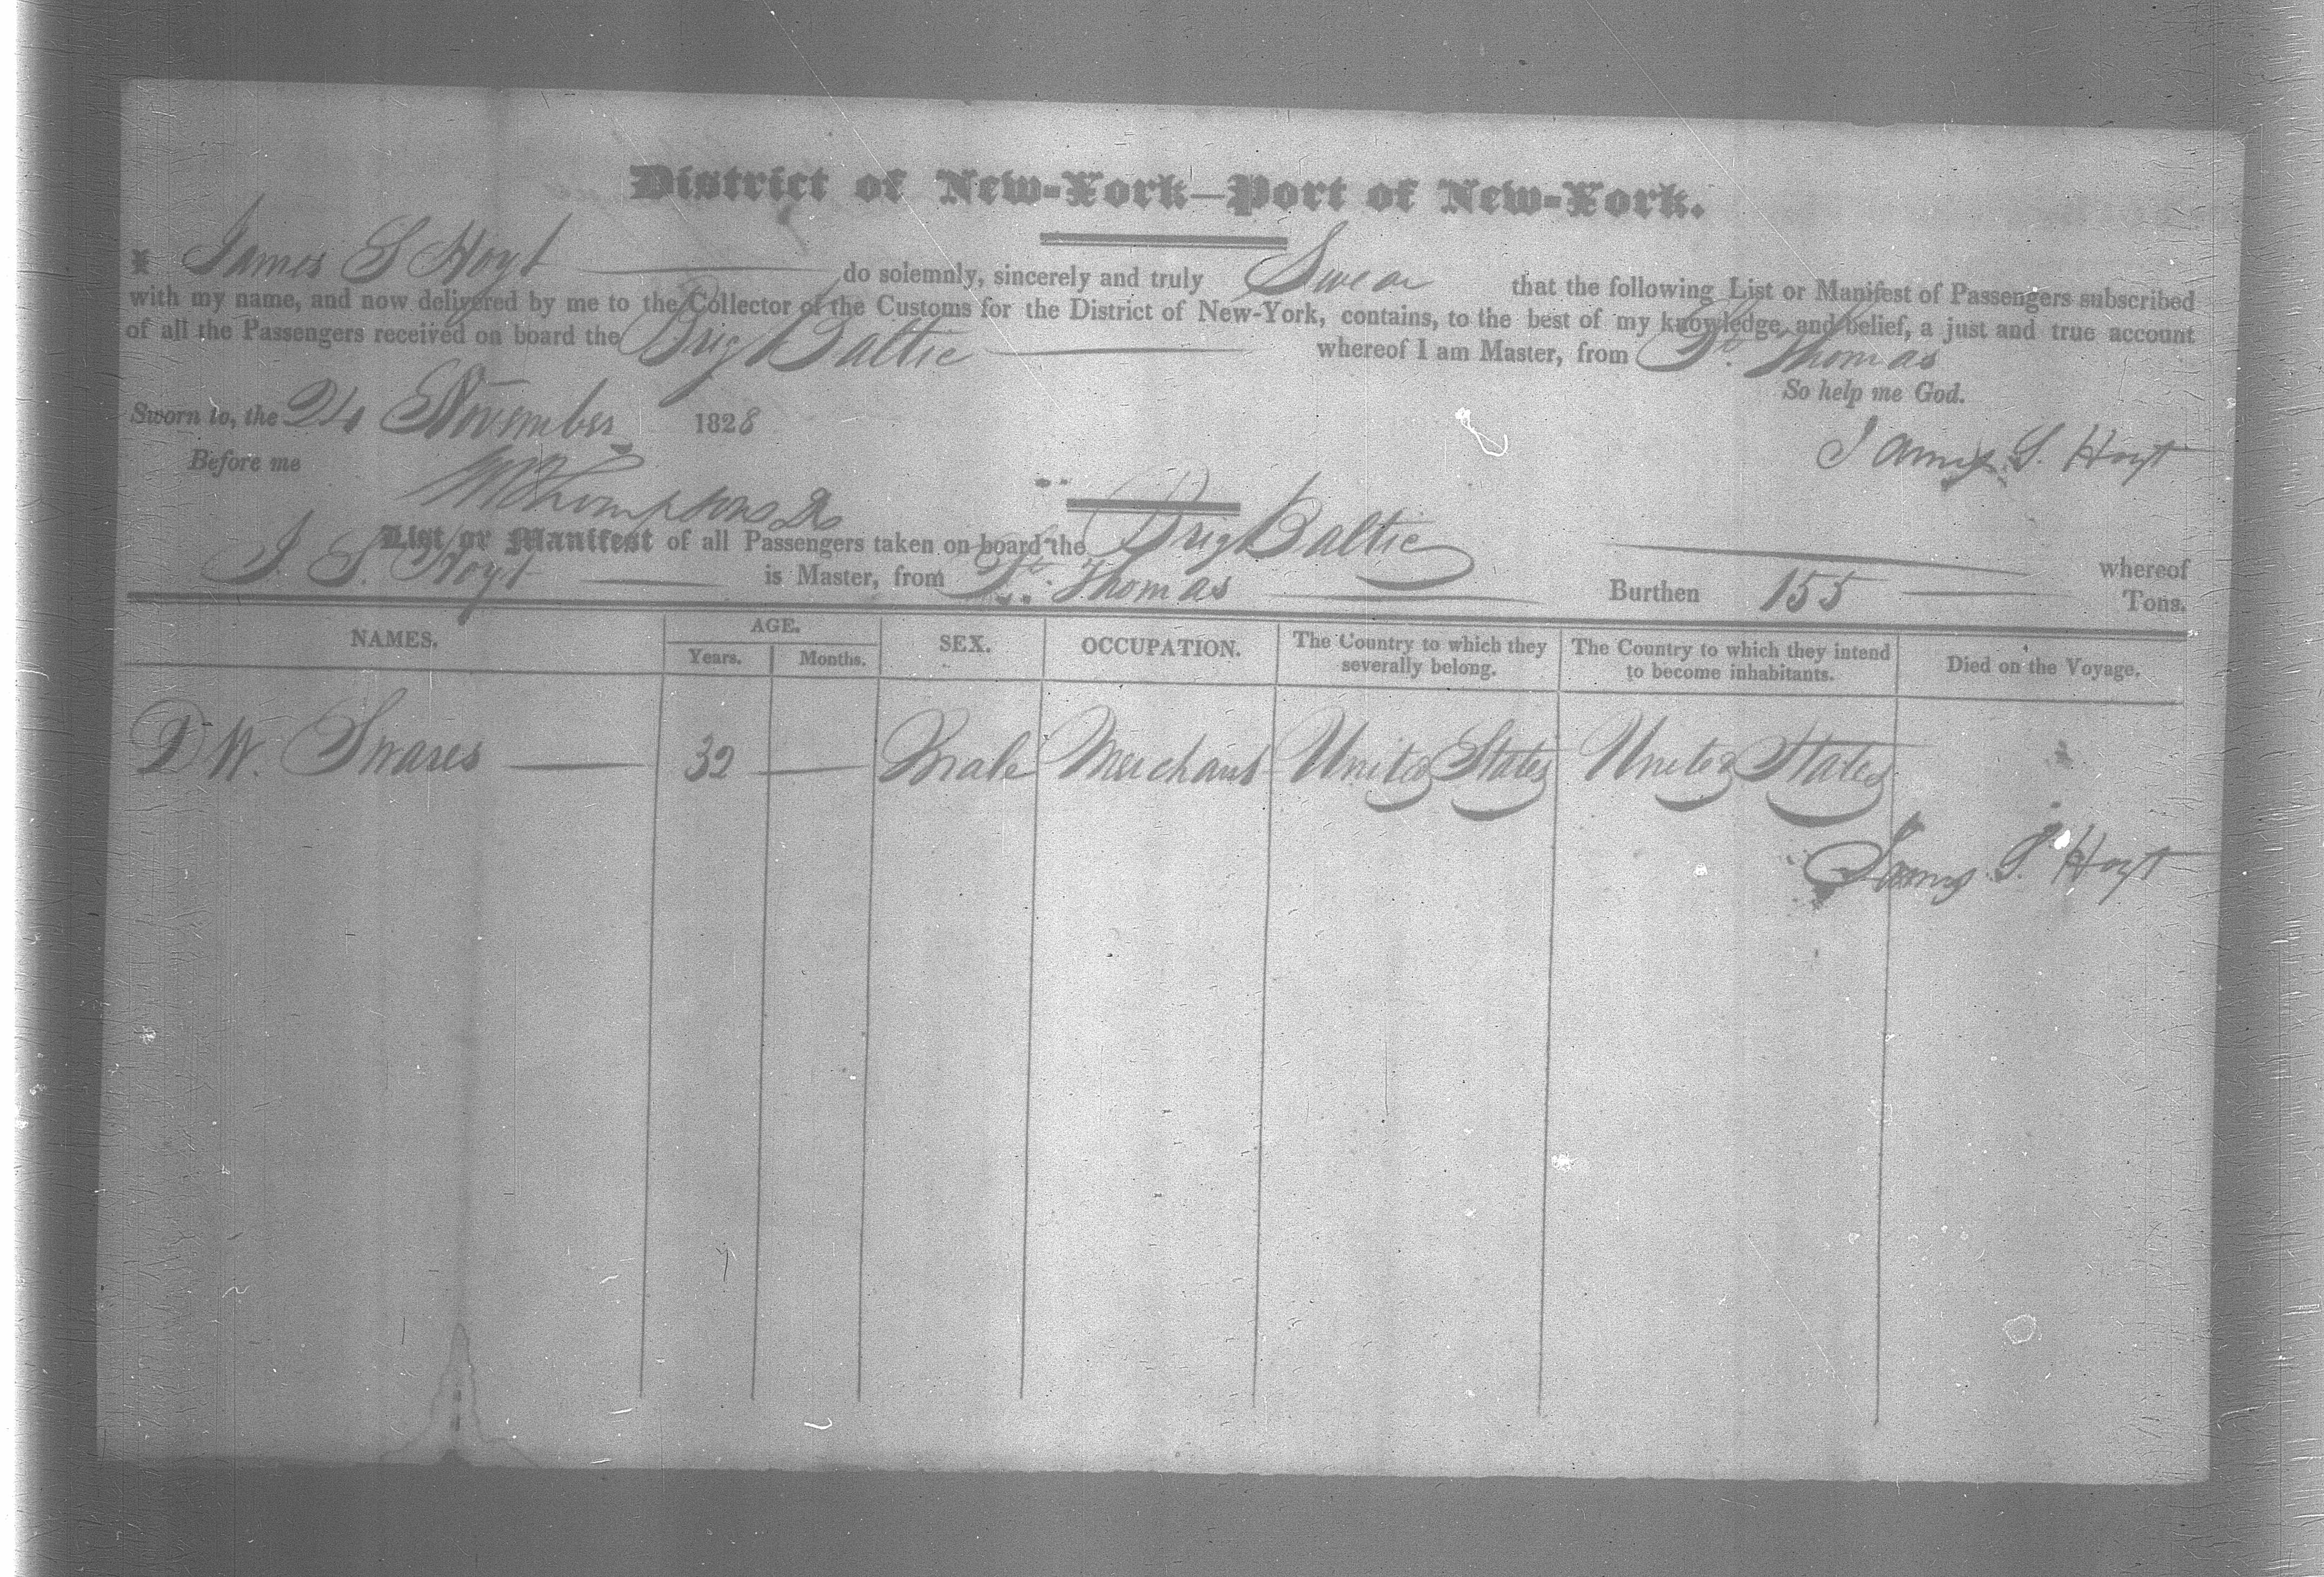 District of New-York—Port of New-York.
I James S Hoyt do solemnly, sincerely and truly Swear that the following List or Manifest of Passengers subscribed
with my name, and now delivered by me to the Collector of the Customs for the District of New-York, contains, to the best of my knowledge and belief, a just and true account
of all the Passengers received on board the Brig Baltic whereof I am Master, from St. Thomas
So help me God.
Sworn to, the 24 November 1828
James S. Hoyt
Before me
List or Manifest of all Passengers taken on board the Brig Baltic whereof
J. S. Hoyt is Master, from St. Thomas Burthen 155 Tons.
NAMES. AGE. Years. Months. SEX. OCCUPATION. The Country to which they severally belong. The Country to which they intend to become inhabitants. Died on the Voyage.
D W. Swares 32 — Male Merchant United States United States
James S. Hoyt